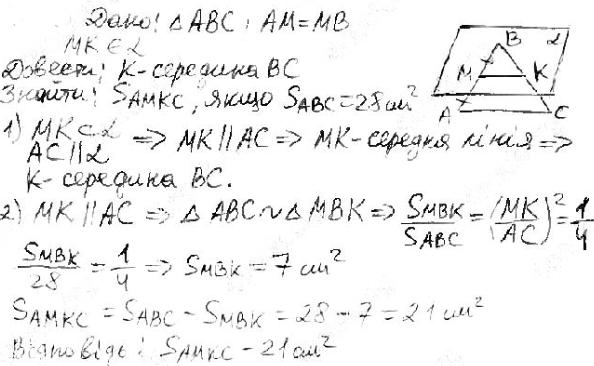 Дано: △ABC, AM=MB
MK∈α
Довести: K-середина BC
Знайти: S_AMKC, якщо S_ABC=28 см²
1) MK⊂α
AC∥α
=> MK∥AC => MK-середня лінія =>
K-середина BC.
2) MK∥AC => △ABC∼△MBK => S_MBK/S_ABC = (MK/AC)² = 1/4
S_MBK/28 = 1/4 => S_MBK = 7 см²
S_AMKC = S_ABC - S_MBK = 28 - 7 = 21 см²
Відповідь: S_AMKC - 21 см²
B
α
M
K
A
C